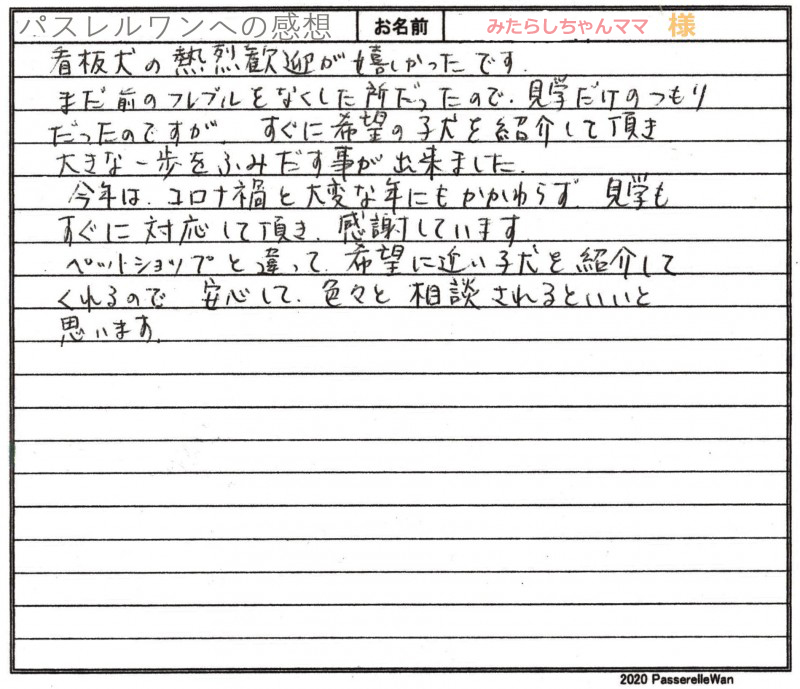 パスレルワンへの感想 お名前 みたらしちゃんママ 様
看板犬の熱烈歓迎が嬉しかったです.
まだ前のフレブルをなくした所だったので、見学だけのつもり
だったのですが、すぐに希望の子犬を紹介して頂き
大きな一歩をふみだす事が出来ました.
今年は、コロナ禍と大変な年にもかかわらず、見学も
すぐに対応して頂き、感謝しています
ペットショップと違って、希望に近い子犬を紹介して
くれるので 安心して、色々と相談されるといいと
思います.
2020 PasserelleWan